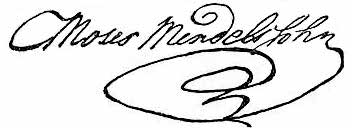 Moses Mendelssohn